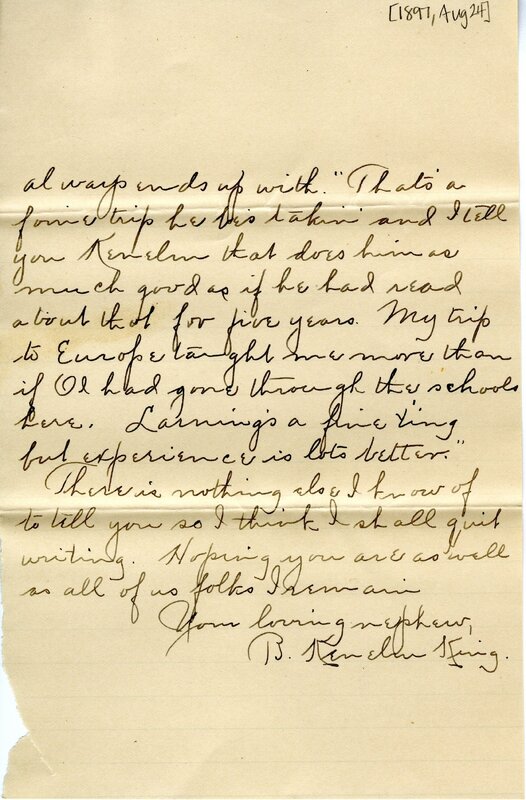 [1897, Aug 24]
always ends up with. "Thats a
foine trip he bes takin' and I tell
you Kenelm that does him as
much good as if he had read
about that for five years. My trip
to Europe taught me more than
if OI had gone through the schools
here. Larning's a fine t'ing
but experience is lots better."
There is nothing else I know of
to tell you so I think I shall quit
writing. Hoping you are as well
as all of us folks I remain
Your loving nephew,
B. Kenelm King.